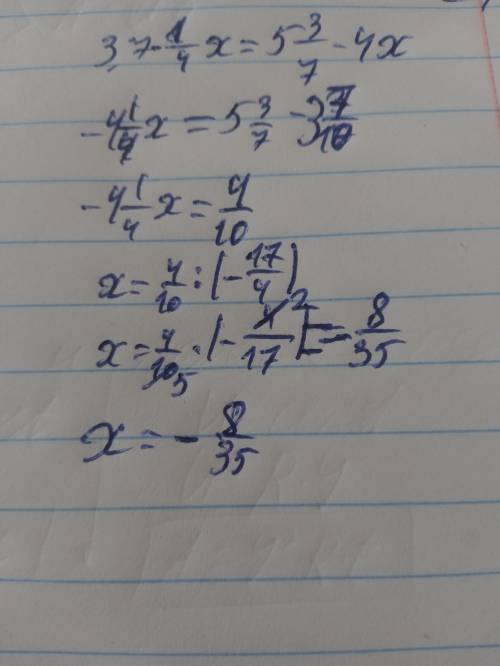 3,7 - 1/4 x = 5 3/7 - 4x
-4 1/4 x = 5 3/7 - 3 7/10
-4 1/4 x = 4/10
x = 4/10 : (-17/4)
x = 4/10 5 · (-4/17) 2 = - 8/35
x = - 8/35